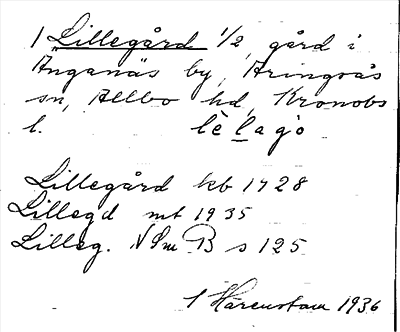 1 Lillegård 1/2, gård i
Änganäs by, Aringsås
sn, Allbo hd, Kronobs
l. lèlagò
Lillegård kb 1728
Lillegd mt 1935
Lilleg. NSm B s 125
1 Harenstam 1936